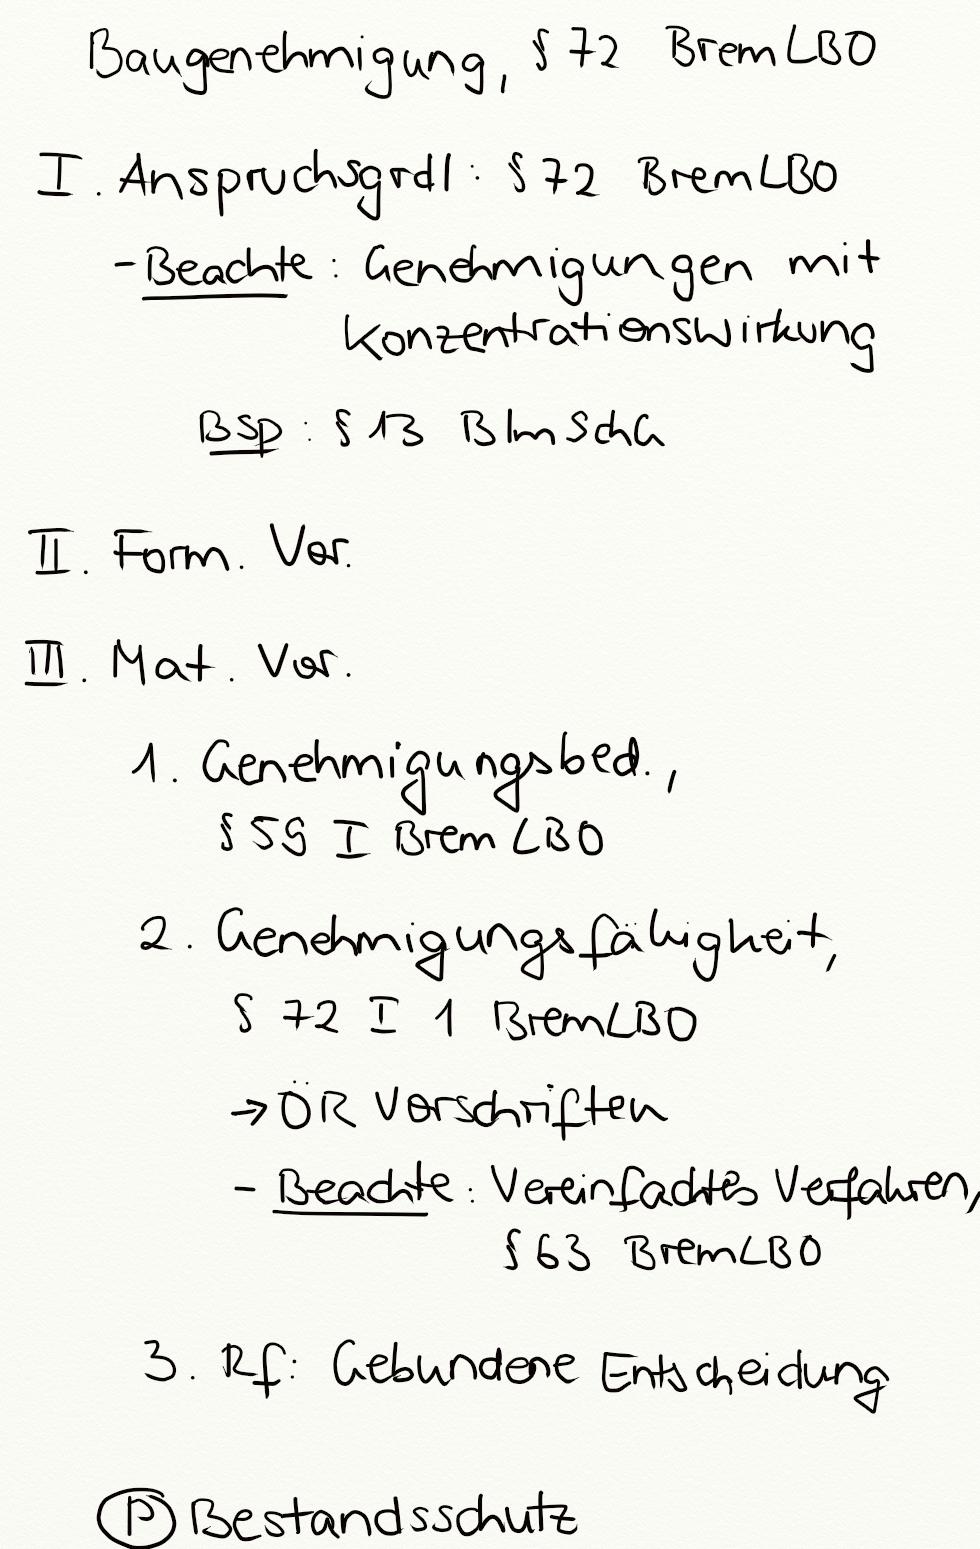 Baugenehmigung, § 72 BremLBO
I. Anspruchsgrdl: § 72 BremLBO
- Beachte: Genehmigungen mit
Konzentrationswirkung
Bsp: § 13 BImSchG
II. Form. Vor.
III. Mat. Vor.
1. Genehmigungsbed.,
§ 59 I BremLBO
2. Genehmigungsfähigkeit,
§ 72 I 1 BremLBO
→ ÖR Vorschriften
- Beachte: Vereinfachtes Verfahren,
§ 63 BremLBO
3. Rf: Gebundene Entscheidung
(P) Bestandsschutz